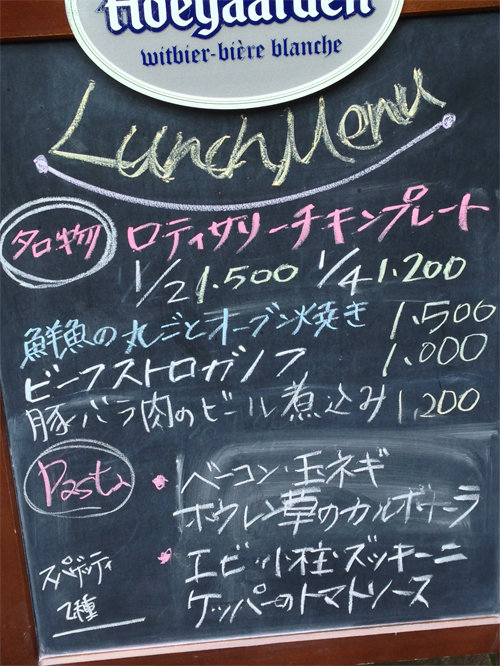 Hoegaarden
witbier-bière blanche
Lunch Menu
名物 ロティサリーチキンプレート
1/2 1.500 1/4 1.200
鮮魚の丸ごとオーブン焼き 1.500
ビーフストロガノフ 1.000
豚バラ肉のビール煮込み 1,200
Pasta ・ベーコン・玉ネギ
ホウレン草のカルボナーラ
・エビ・小柱・ズッキーニ
スパゲッティ
ケッパーのトマトソース
2種